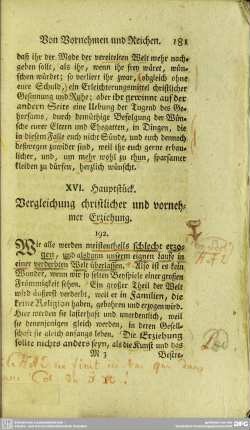 Von Vornehmen und Reichen. 181
daß ihr der Mode der vereitelten Welt mehr nach-
geben sollt, als ihr, wenn ihr frey wäret, wün-
schen würdet; so verliert ihr zwar, (obgleich ohne
eure Schuld,) ein Erleichterungsmittel christlicher
Gesinnung und Ruhe; aber ihr gewinnet auf der
andern Seite eine Uebung der Tugend des Ge-
horsams, durch demüthige Befolgung der Wün-
sche eurer Eltern und Ehegatten, in Dingen, die
in diesem Falle euch nicht Sünde, und euch dennoch
deßwegen zuwider sind, weil ihr euch gerne erbau-
licher, und, um mehr wohl zu thun, sparsamer
kleiden zu dürfen, herzlich wünschet.
XVI. Hauptstück.
Vergleichung christlicher und vorneh-
mer Erziehung.
192.
Wir alle werden meistentheils schlecht erzo-
gen, und alsdann unserm eignen Laufe in
einer verderbten Welt überlassen. Also ist es kein
Wunder, wenn wir so selten Beyspiele einer großen
Frömmigkeit sehen. Ein großer Theil der Welt
wird äußerst verderbt, weil er in Familien, die
keine Religion haben, gebohren und erzogen wird.
Hier werden sie lasterhaft und unordentlich, weil
sie denenjenigen gleich werden, in deren Gesell-
schaft sie gleich anfangs leben. Die Erziehung
sollte nichts anders seyn, als die Kunst und das
M 3 Bestre-